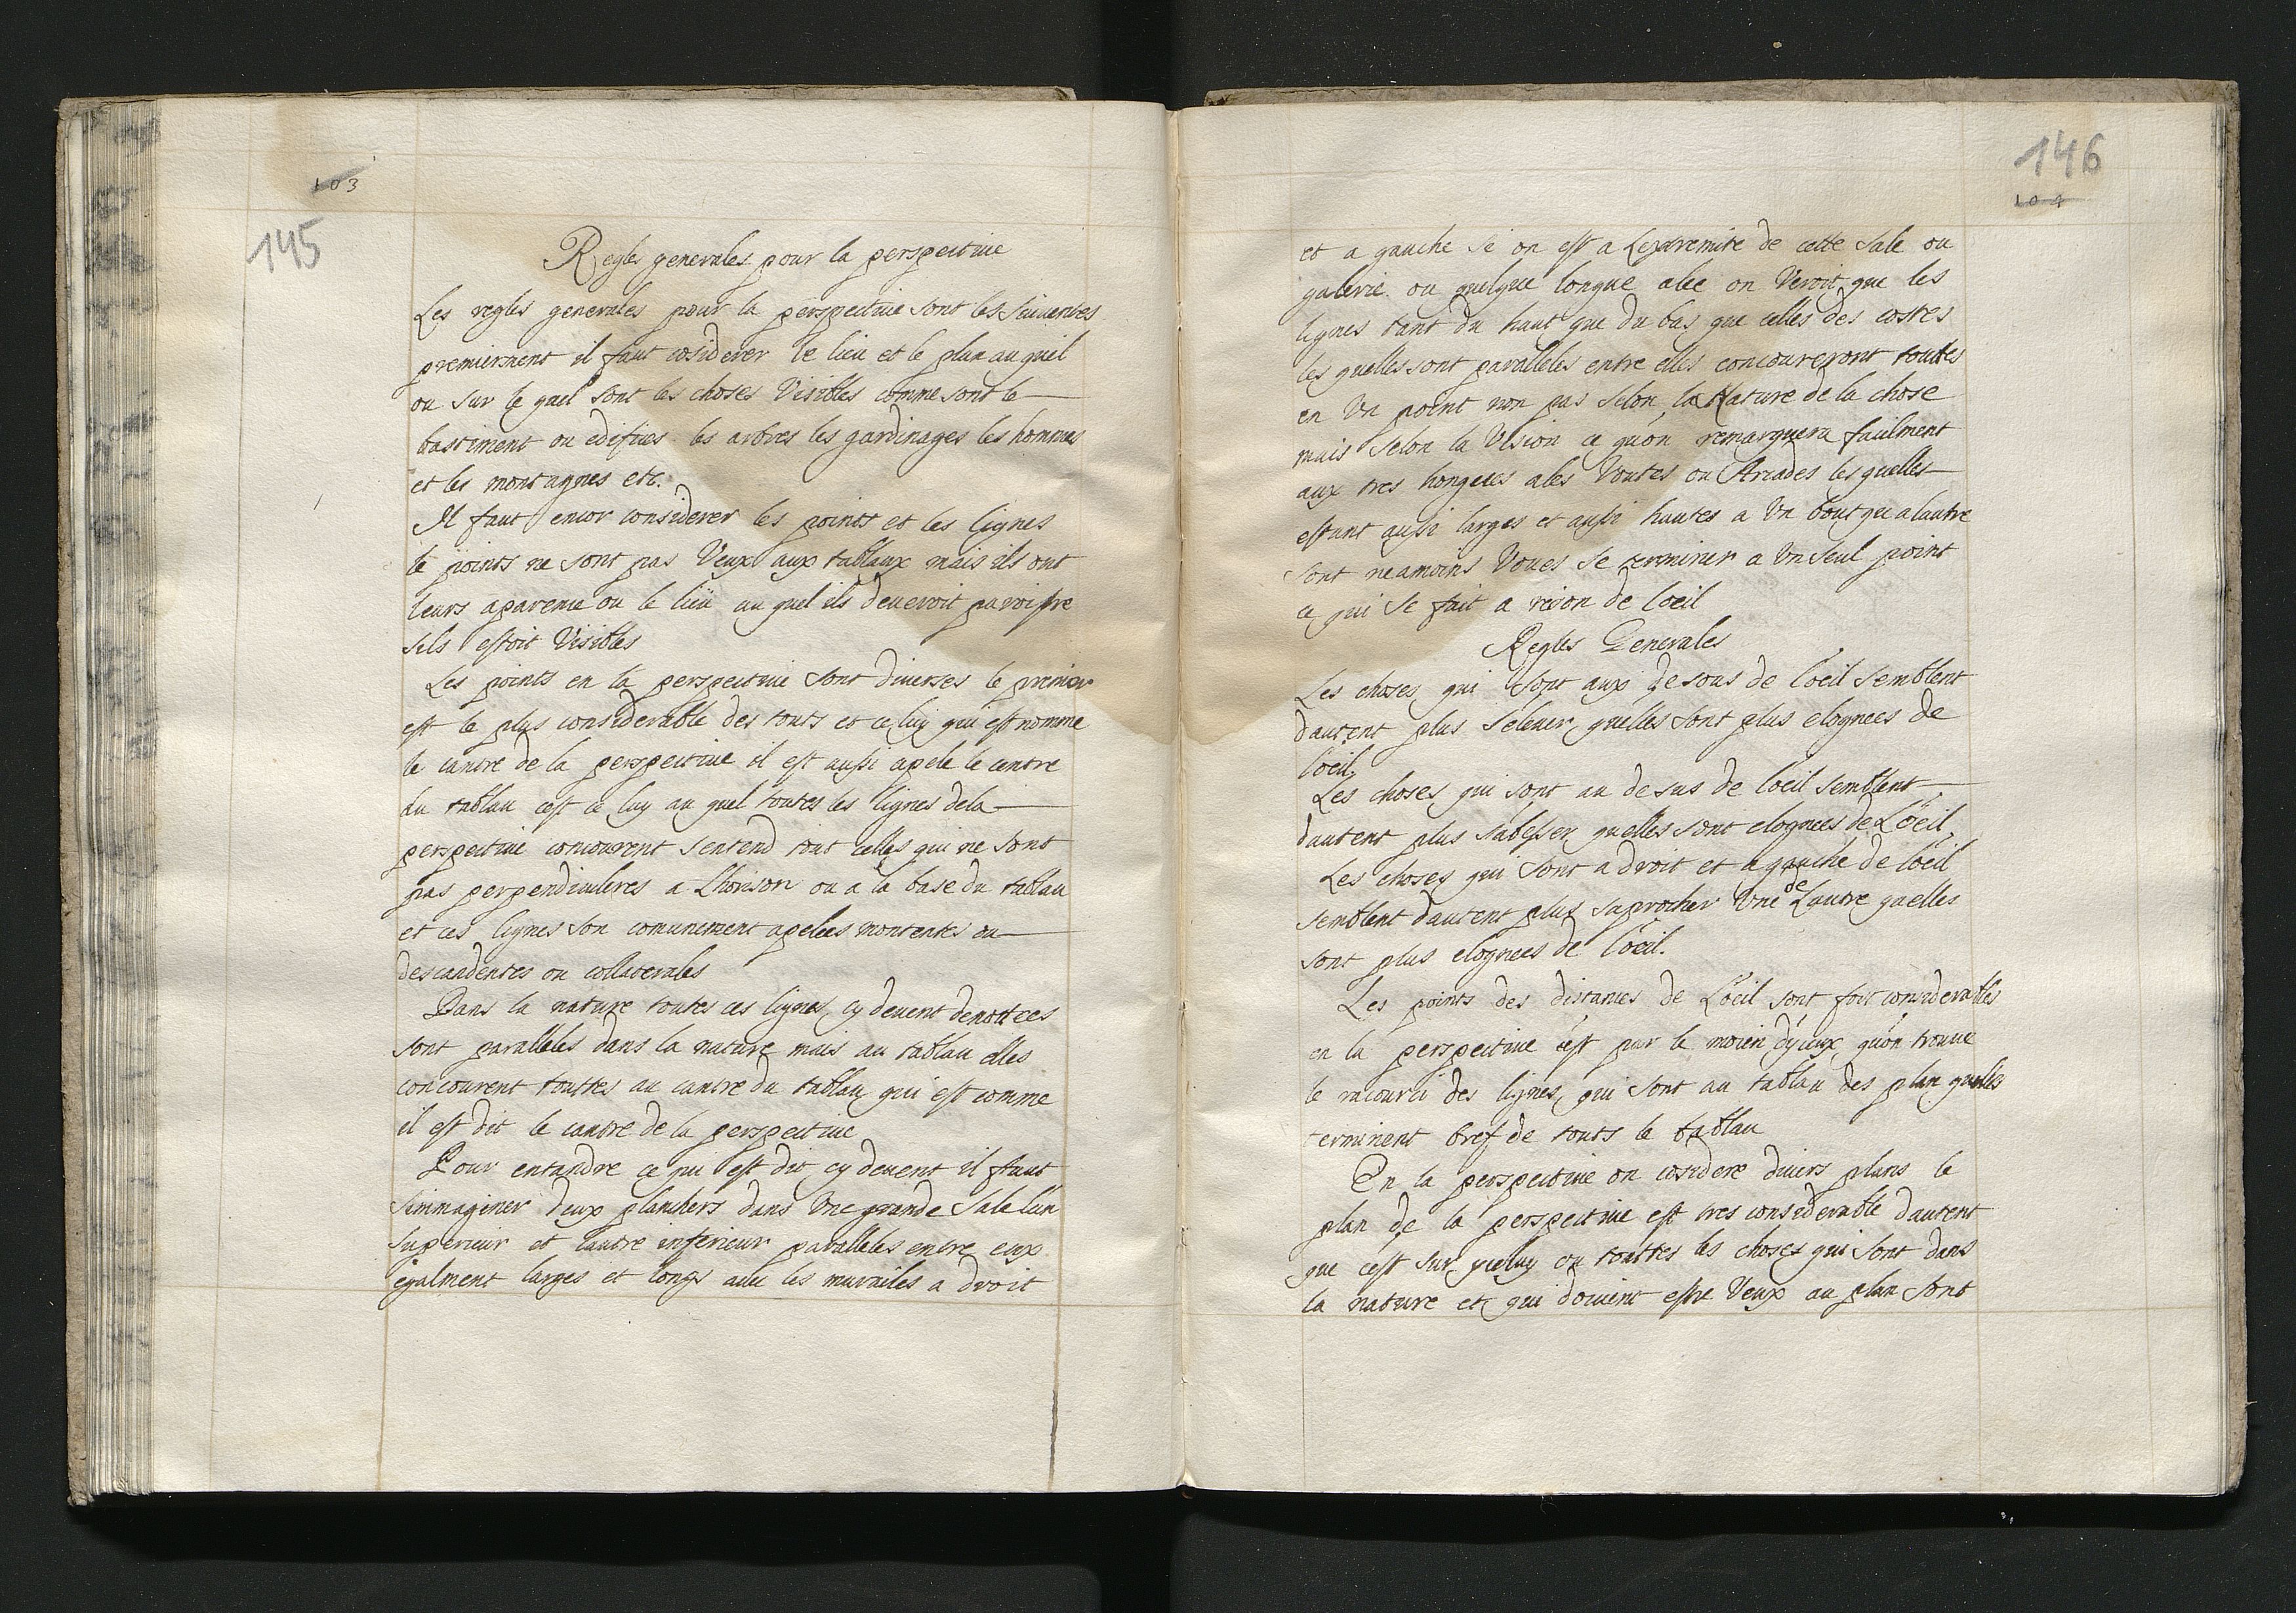 103
145
Regles generales pour la perspectiue
Les regles generales pour la perspectiue sont les suiuentes
premierment il faut cosiderer le lieu et le plan auquel
ou sur le quel sont les choses Visibles comme sont le
bastiment ou edifices les arbres les gardinages les hommes
et les montagnes etc.
Il faut encor considerer les points et les lignes
le points ne sont pas Veux aux tablaux mais ils ont
leurs aparence ou le lieu au quel ils deueroit paroistre
sils estoit Visibles
Les points en la perspectiue sont diuerses le premier
est le plus considerable des touts et celuy qui est nomme
le cantre de la perspectiue il est aussi apele le centre
du tablau cest ce luy au quel toutes les lignes dela
perspectiue concourent sentend tout celles qui ne sont
pas perpendiculeres a Lhorison ou a la base du tablau
et ces lignes son comunement apelees montentes ou
descandentes ou collaterales
Dans la nature toutes ces lignes cy deuent denottees
sont paralleles dans la nature mais au tablau elles
concourent touttes au cantre du tablau qui est comme
il est dit le cantre de la perspectiue
Pour entandre ce qui est dit cy deuent il faut
simmaginer deux planchers dans Une grande Sale lun
superieur et lautre inferieur paralleles entre eux
egalment larges et longs auec les murailes a droit
146
104
et a gauche si on est a Lextremite de cette sale ou
galerie ou quelque longue alee on Veroit que les
lignes tant du haut que du bas que celles des costes
les quelles sont paralleles entre elles concoureront toutes
en Un point non pas selon la Nature de la chose
mais selon la Vision ce quon remarquera facilment
aux tres longues ales Voutes ou Arcades les quelles
estant aussi larges et aussi hautes a Un bout qu a lautre
sont neamoins Voues se terminer a Un seul point
ce qui se fait a reson de loeil
Regles Generales
Les choses qui sont aux desous de loeil semblent
dautent plus seleuer quelles sont plus elognees de
loeil,
Les choses qui sont au desus de loeil semblent
dautent plus sabesser quelles sont elognees de Loeil,
Les choses qui sont a droit et a gauche de loeil
semblent dautent plus saprocher Une de Lautre quelles
sont plus elognees de loeil.
Les points des distances de Loeil sont fort considerables
en la perspectiue cest par le moien dyceux quon trouue
le racourci des lignes, qui sont au tablau des plan quelles
terminent bref de touts le tablau
En la perspectiue on cosidere diuers plans le
plan de la perspectiue est tres considerable dautent
que cest sur yceluy ou touttes les choses qui sont dans
la nature et qui doiuent estre Veux au plan sont